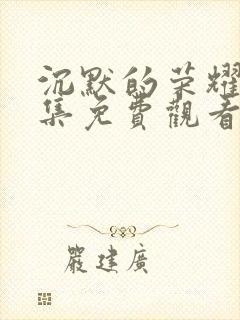 沉默的荣耀
集免費觀看
嚴建廣